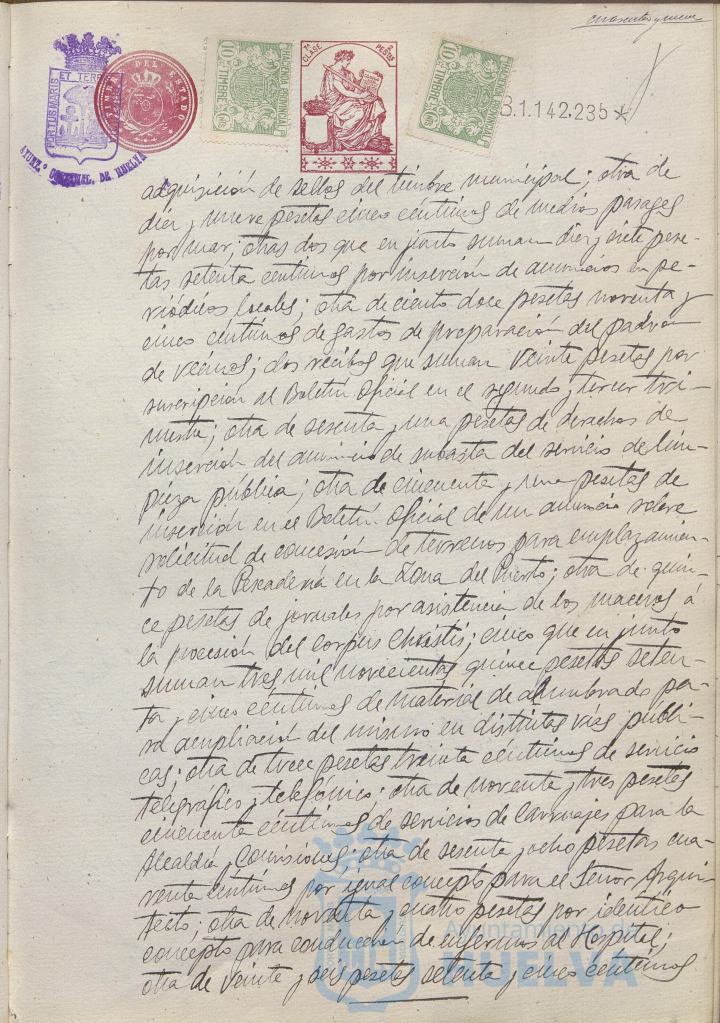 cuarenta y nueve
PORTUS MARIS ET TERRE
AYUNT.º DE HUELVA
TIMBRE DEL ESTADO
10 TIMBRE
HACIENDA PROVINCIAL
7ª CLASE
PESETAS
10 TIMBRE
HACIENDA PROVINCIAL
B.1.142.235*
adquisición de sellos del timbre municipal; otra de
diez y nueve pesetas cinco céntimos de medios pasages
por mar; otras dos que en junto suman diez y siete pese-
tas setenta céntimos por inserción de anuncios en pe-
riódicos locales; otra de ciento doce pesetas noventa y
cinco céntimos de gastos de preparación del padrón
de vecinos; dos recibos que suman veinte pesetas por
suscripción al Boletín Oficial en el segundo y tercer tri-
mestre; otra de sesenta y una pesetas de derechos de
inserción del anuncio de subasta del servicio de lim-
pieza pública; otra de cincuenta y una pesetas de
inserción en el Boletín Oficial de un anuncio sobre
solicitud de concesión de terrenos para emplazamien-
to de la Pescadería en la Zona del Puerto; otra de quin-
ce pesetas de jornales por asistencia de los maceros á
la procesión del Corpus Christis; cinco que en junto
suman tres mil novecientas quince pesetas seten-
ta y cinco céntimos de material de alumbrado pa-
ra ampliación del mismo en distintas vías públi-
cas; otra de trece pesetas treinta céntimos de servicio
telegráfico y telefónico; otra de noventa y tres pesetas
cincuenta céntimos de servicios de carruajes para la
Alcaldía y Comisiones; otra de sesenta y ocho pesetas cua-
renta céntimos por igual concepto para el Señor Arqui-
tecto; otra de noventa y cuatro pesetas por idéntico
concepto para conducción de enfermos al Hospital;
otra de veinte y seis pesetas setenta y cinco céntimos
Ayuntamiento de
HUELVA